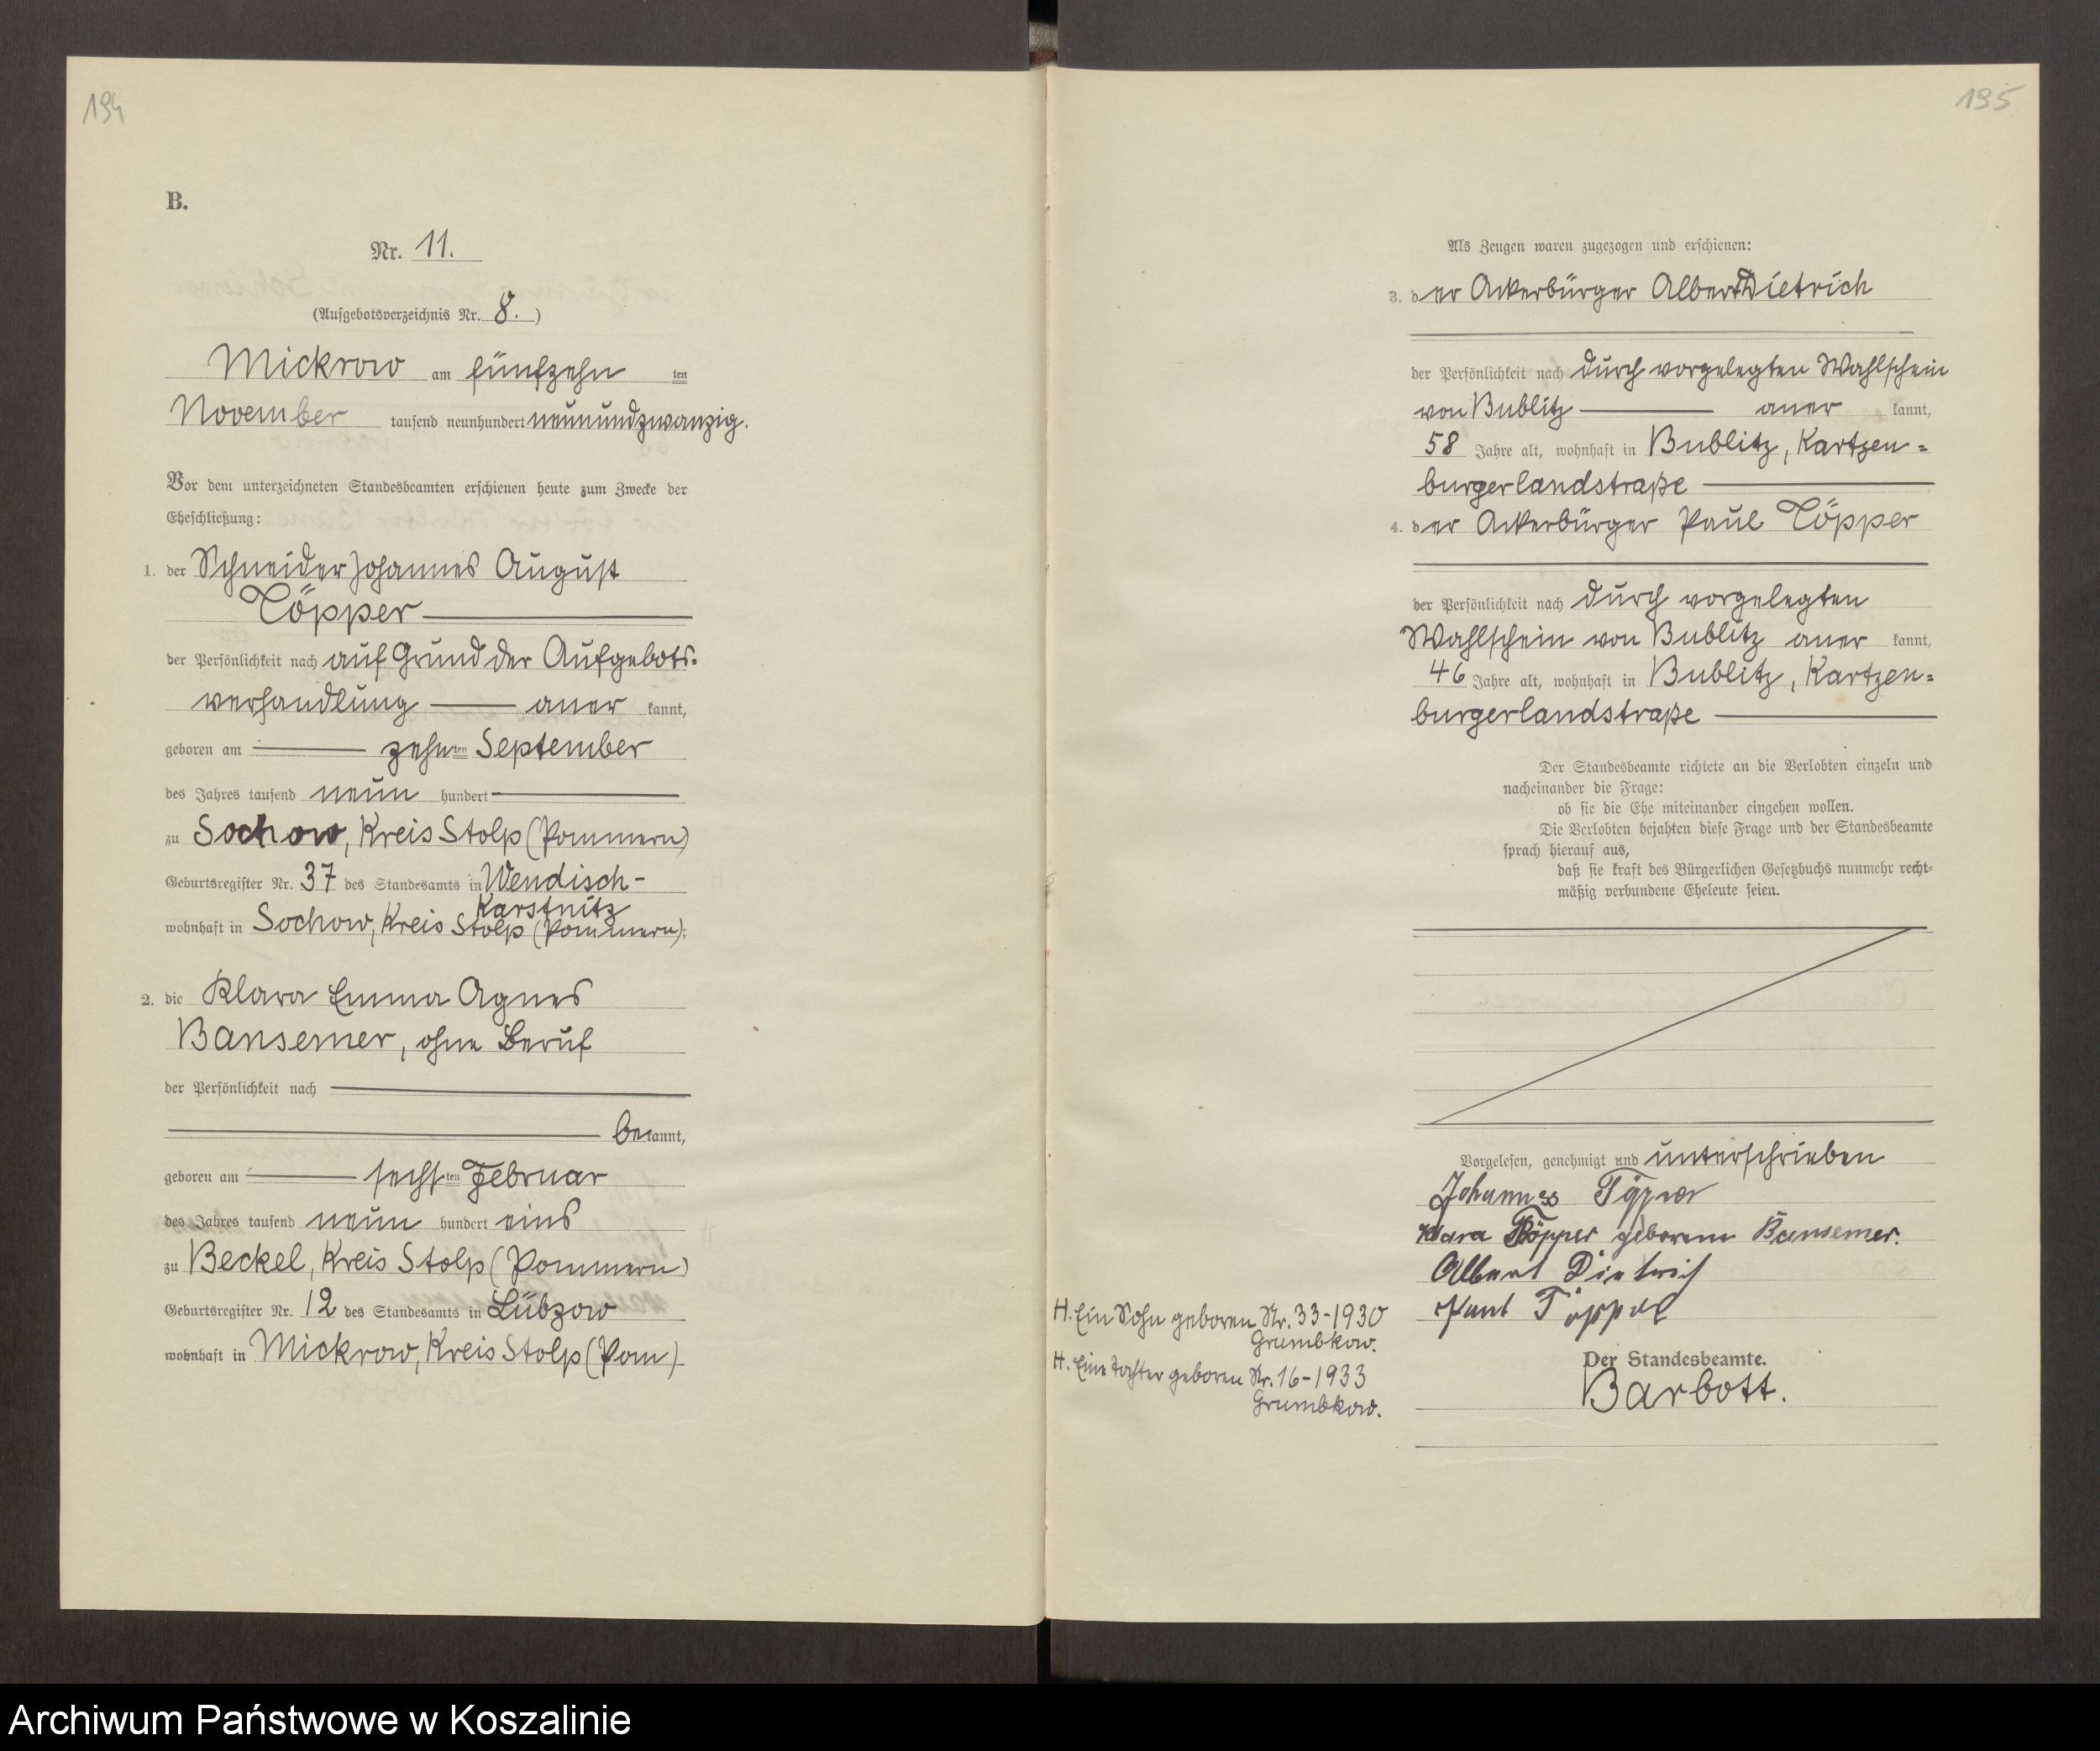 194
B.
Nr. 11.
(Aufgebotsverzeichnis Nr. 8.)
Mickrow am fünfzehn ten
November tausend neunhundert neunundzwanzig.
Vor dem unterzeichneten Standesbeamten erschienen heute zum Zwecke der
Eheschließung:
1. der Schneider Johannes August
Töpper
der Persönlichkeit nach auf Grund der Aufgebots-
verhandlung aner kannt,
geboren am zehn ten September
des Jahres tausend neun hundert
zu Sochow, Kreis Stolp (Pommern)
Geburtsregister Nr. 37 des Standesamts in Wendisch-
Karstnitz
wohnhaft in Sochow, Kreis Stolp (Pommern);
2. die Klara Emma Agnes
Bansemer, ohne Beruf
der Persönlichkeit nach
bekannt,
geboren am sechs ten Februar
des Jahres tausend neun hundert eins
zu Beckel, Kreis Stolp (Pommern)
Geburtsregister Nr. 12 des Standesamts in Lübzow
wohnhaft in Mickrow, Kreis Stolp (Pom)
195
Als Zeugen waren zugezogen und erschienen:
3. der Ackerbürger Albert Dietrich
der Persönlichkeit nach durch vorgelegten Wahlschein
von Bublitz aner kannt,
58 Jahre alt, wohnhaft in Bublitz, Kartzen=
burgerlandstraße
4. der Ackerbürger Paul Töpper
der Persönlichkeit nach durch vorgelegten
Wahlschein von Bublitz aner kannt,
46 Jahre alt, wohnhaft in Bublitz, Kartzen=
burgerlandstraße
Der Standesbeamte richtete an die Verlobten einzeln und
nacheinander die Frage:
ob sie die Ehe miteinander eingehen wollen.
Die Verlobten bejahten diese Frage und der Standesbeamte
sprach hierauf aus,
daß sie kraft des Bürgerlichen Gesetzbuchs nunmehr recht=
mäßig verbundene Eheleute seien.
Vorgelesen, genehmigt und unterschrieben
Johannes Töpper
Klara Töpper geborene Bansemer.
Albert Dietrich
Paul Töpper
H. Ein Sohn geboren Nr. 33-1930
Grumbkow.
H. Eine Tochter geboren Nr. 16-1933
Grumbkow.
Der Standesbeamte.
Barbott.
Archiwum Państwowe w Koszalinie